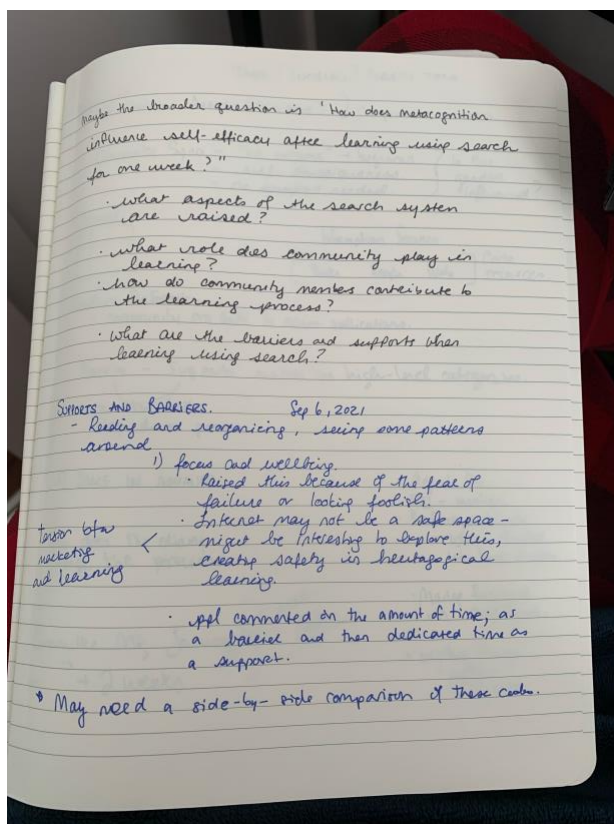 Maybe the broader question is 'How does metacognition
influence self-efficacy after learning using search
for one week?"
· what aspects of the search system
are raised?
· what role does community play in
learning?
· how do community members contribute to
the learning process?
· what are the barriers and supports when
learning using search?
SUPPORTS AND BARRIERS. Sep 6, 2021
- Reading and reorganizing, seeing some patterns
around
1) focus and wellbeing.
· Raised this because of the fear of
failure or looking foolish.
· Internet may not be a safe space -
might be interesting to explore this,
creating safety in heutagogical
learning.
tension btw
marketing
and learning <
· ppl commented on the amount of time; as
a barrier and then dedicated time as
a support.
* May need a side-by-side comparison of these codes.